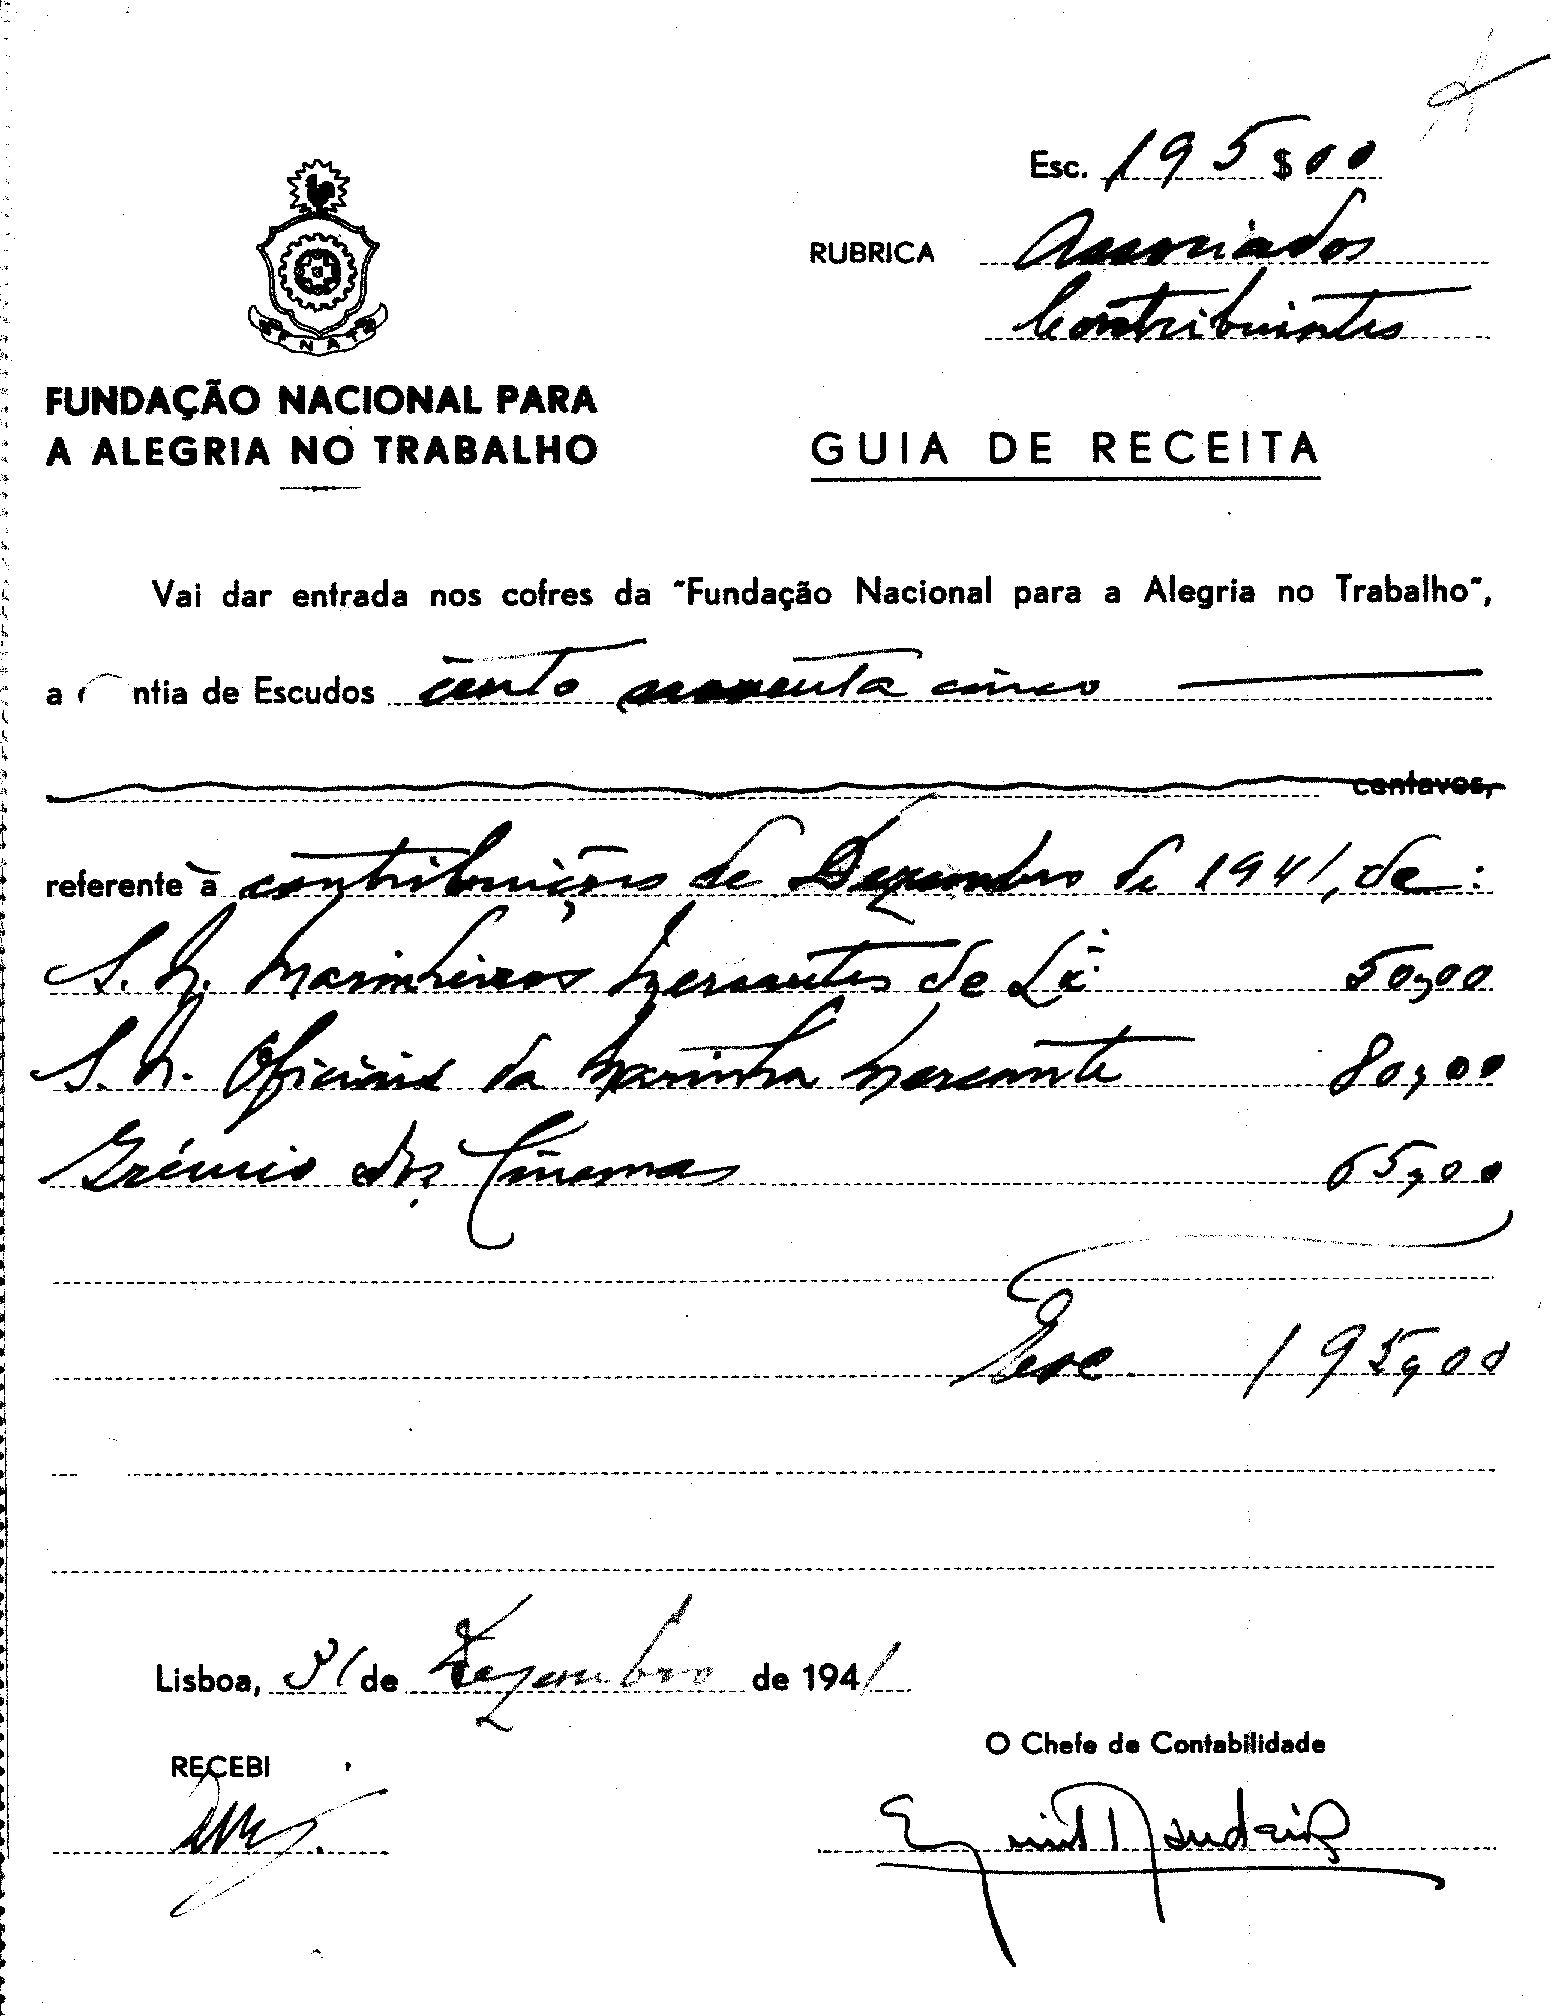 Esc. 195$00
RUBRICA Associados
Contribuintes
FNAT
FUNDAÇÃO NACIONAL PARA
A ALEGRIA NO TRABALHO
GUIA DE RECEITA
Vai dar entrada nos cofres da "Fundação Nacional para a Alegria no Trabalho",
a ntia de Escudos cento noventa cinco
centavos,
referente a contribuições de Dezembro de 1941, de:
S. N. Marinheiros Mercantes de Lx.ª 50,00
S. N. Oficiais da Marinha Mercante 80,00
Grémio dos Cinemas 65,00
Esc. 195,00
Lisboa, 31 de Dezembro de 1941
O Chefe de Contabilidade
RECEBI